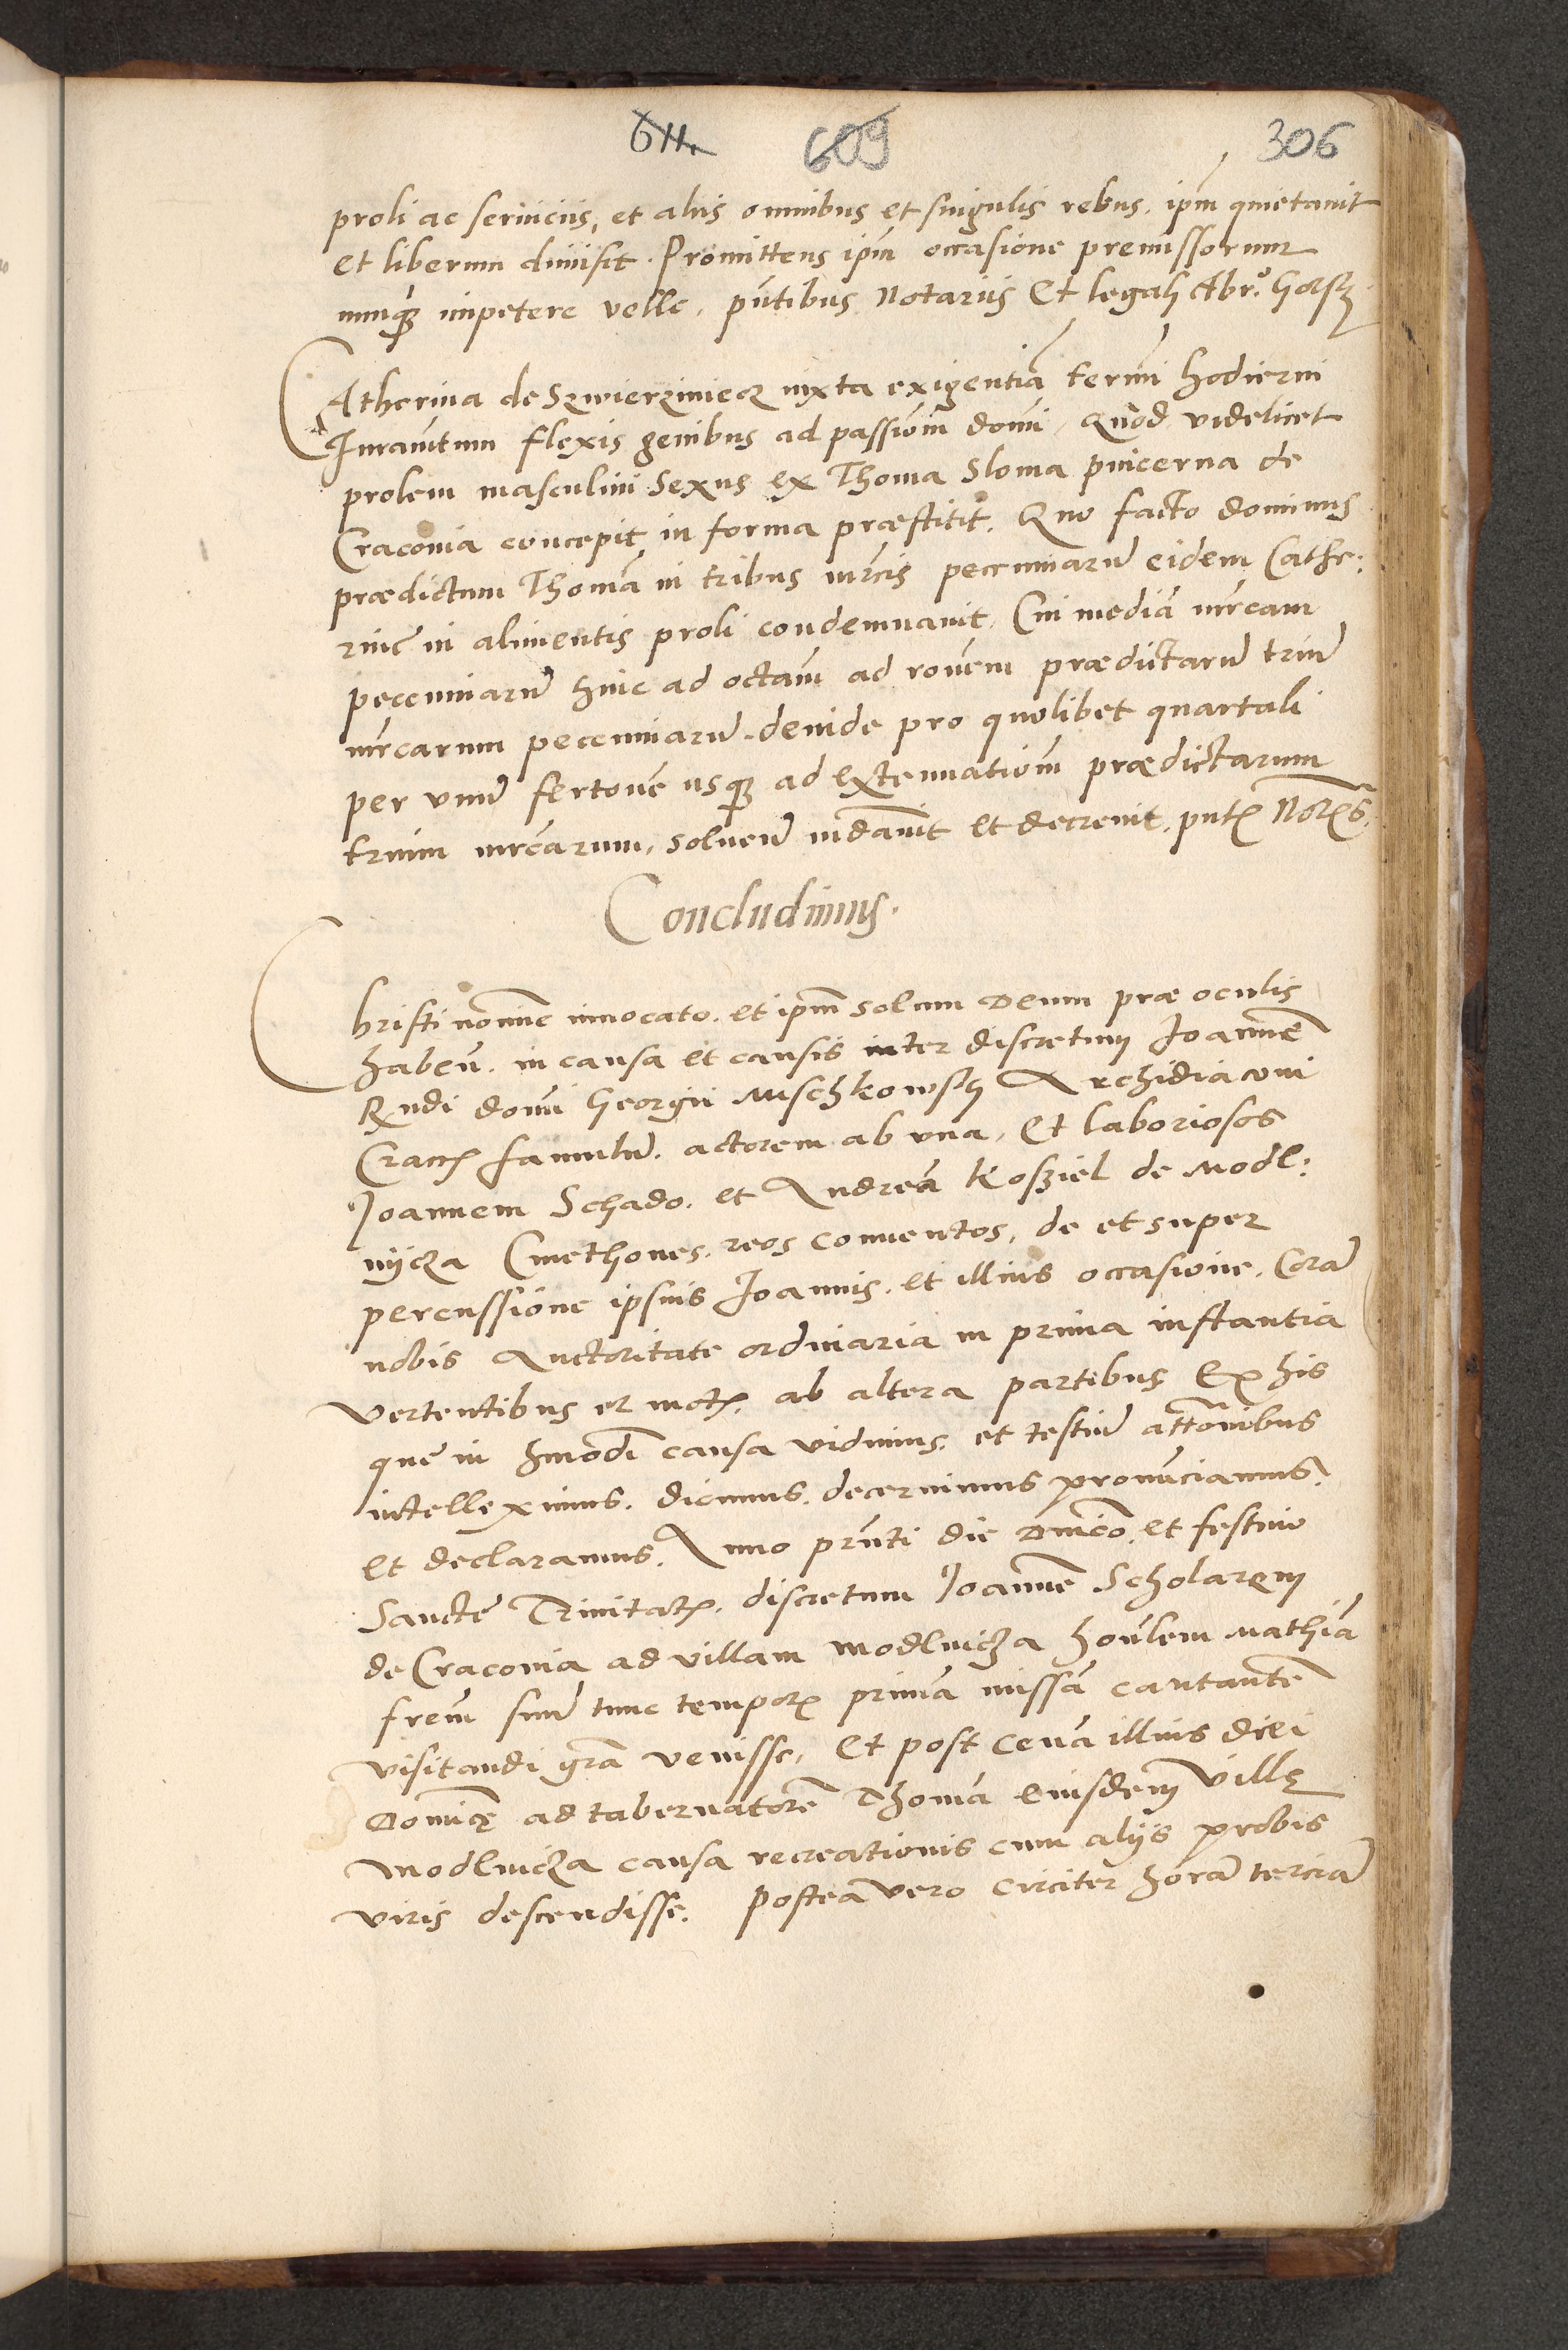 611. 609 306
proli ac seruiciis, et aliis omnibus et singulis rebus. ipm̃ quietauit
et liberum dimisit. Promittens ipm̃ occasione premissorum
nunq̃ impetere velle, pñtibus Notariis et legali Abr.º Gorsky
CAtherina de Szwierziniecz iuxta exigentiã termi hodierni
Iuramtum flexis genibus ad passionem domi, Quod videlicet
prolem masculini sexus ex Thoma Sloma pincerna de
Craconia concepit in forma præstitit. Quo facto dominus
prædictum Thomã in tribus mrcis pecuniarũ eidem Cathe:
rine in alimentis proli condemnauit, Cui mediã mrcam
pecuniarũ hinc ad octam̃ ad rõnem prædictarũ triũ
mrcarum pecuniarũ. deinde pro quolibet quartali
per vnũ fertonẽ usq̃ ad extenuationẽ prædictarum
trium mrcarum, soluerẽ mdãuit et decreuit. pñtẽ Notẽs
Concludimus.
Christi nomine inuocato. et ipm̃ solum Deum præ oculis
habeñ. in causa et causis inter discretum Joannẽ
Rndi domi Georgii Mischkowsky Archidiaconi
Cracẽ famulũ. actorem ab vna, et laboriosos
Joannem Schado. et Andreã Kosziel de Modl:
nijcza Cmethones. reos conuentos, de et super
percussione ipsius Joannis. et illius occasione. Corã
nobis Auctoritate ordinaria in prima instantia
vertentibus et motẽ. ab altera partibus Ex his
que in hmõdi causa vidimus. et testiũ attõnibus
intelleximus. dicimus. decernimus pronunciamus.
et declaramus. Anno prñti die Dmico. et festiuo
Sancte Trinitatẽ. discretum Joannẽ Scholarem
de Craconia ad villam Modlnicza honlem Mathiã
frem̃ suũ tunc temporẽ primã missã cantantẽ
visitandi grã venisse, Et post cenã illius diei
Dominicę ad tabernatorẽ Thomã eiusdem villę
Modlnicza causa recreationis cum alijs probis
viris descendisse. Postea vero circiter horã terciã